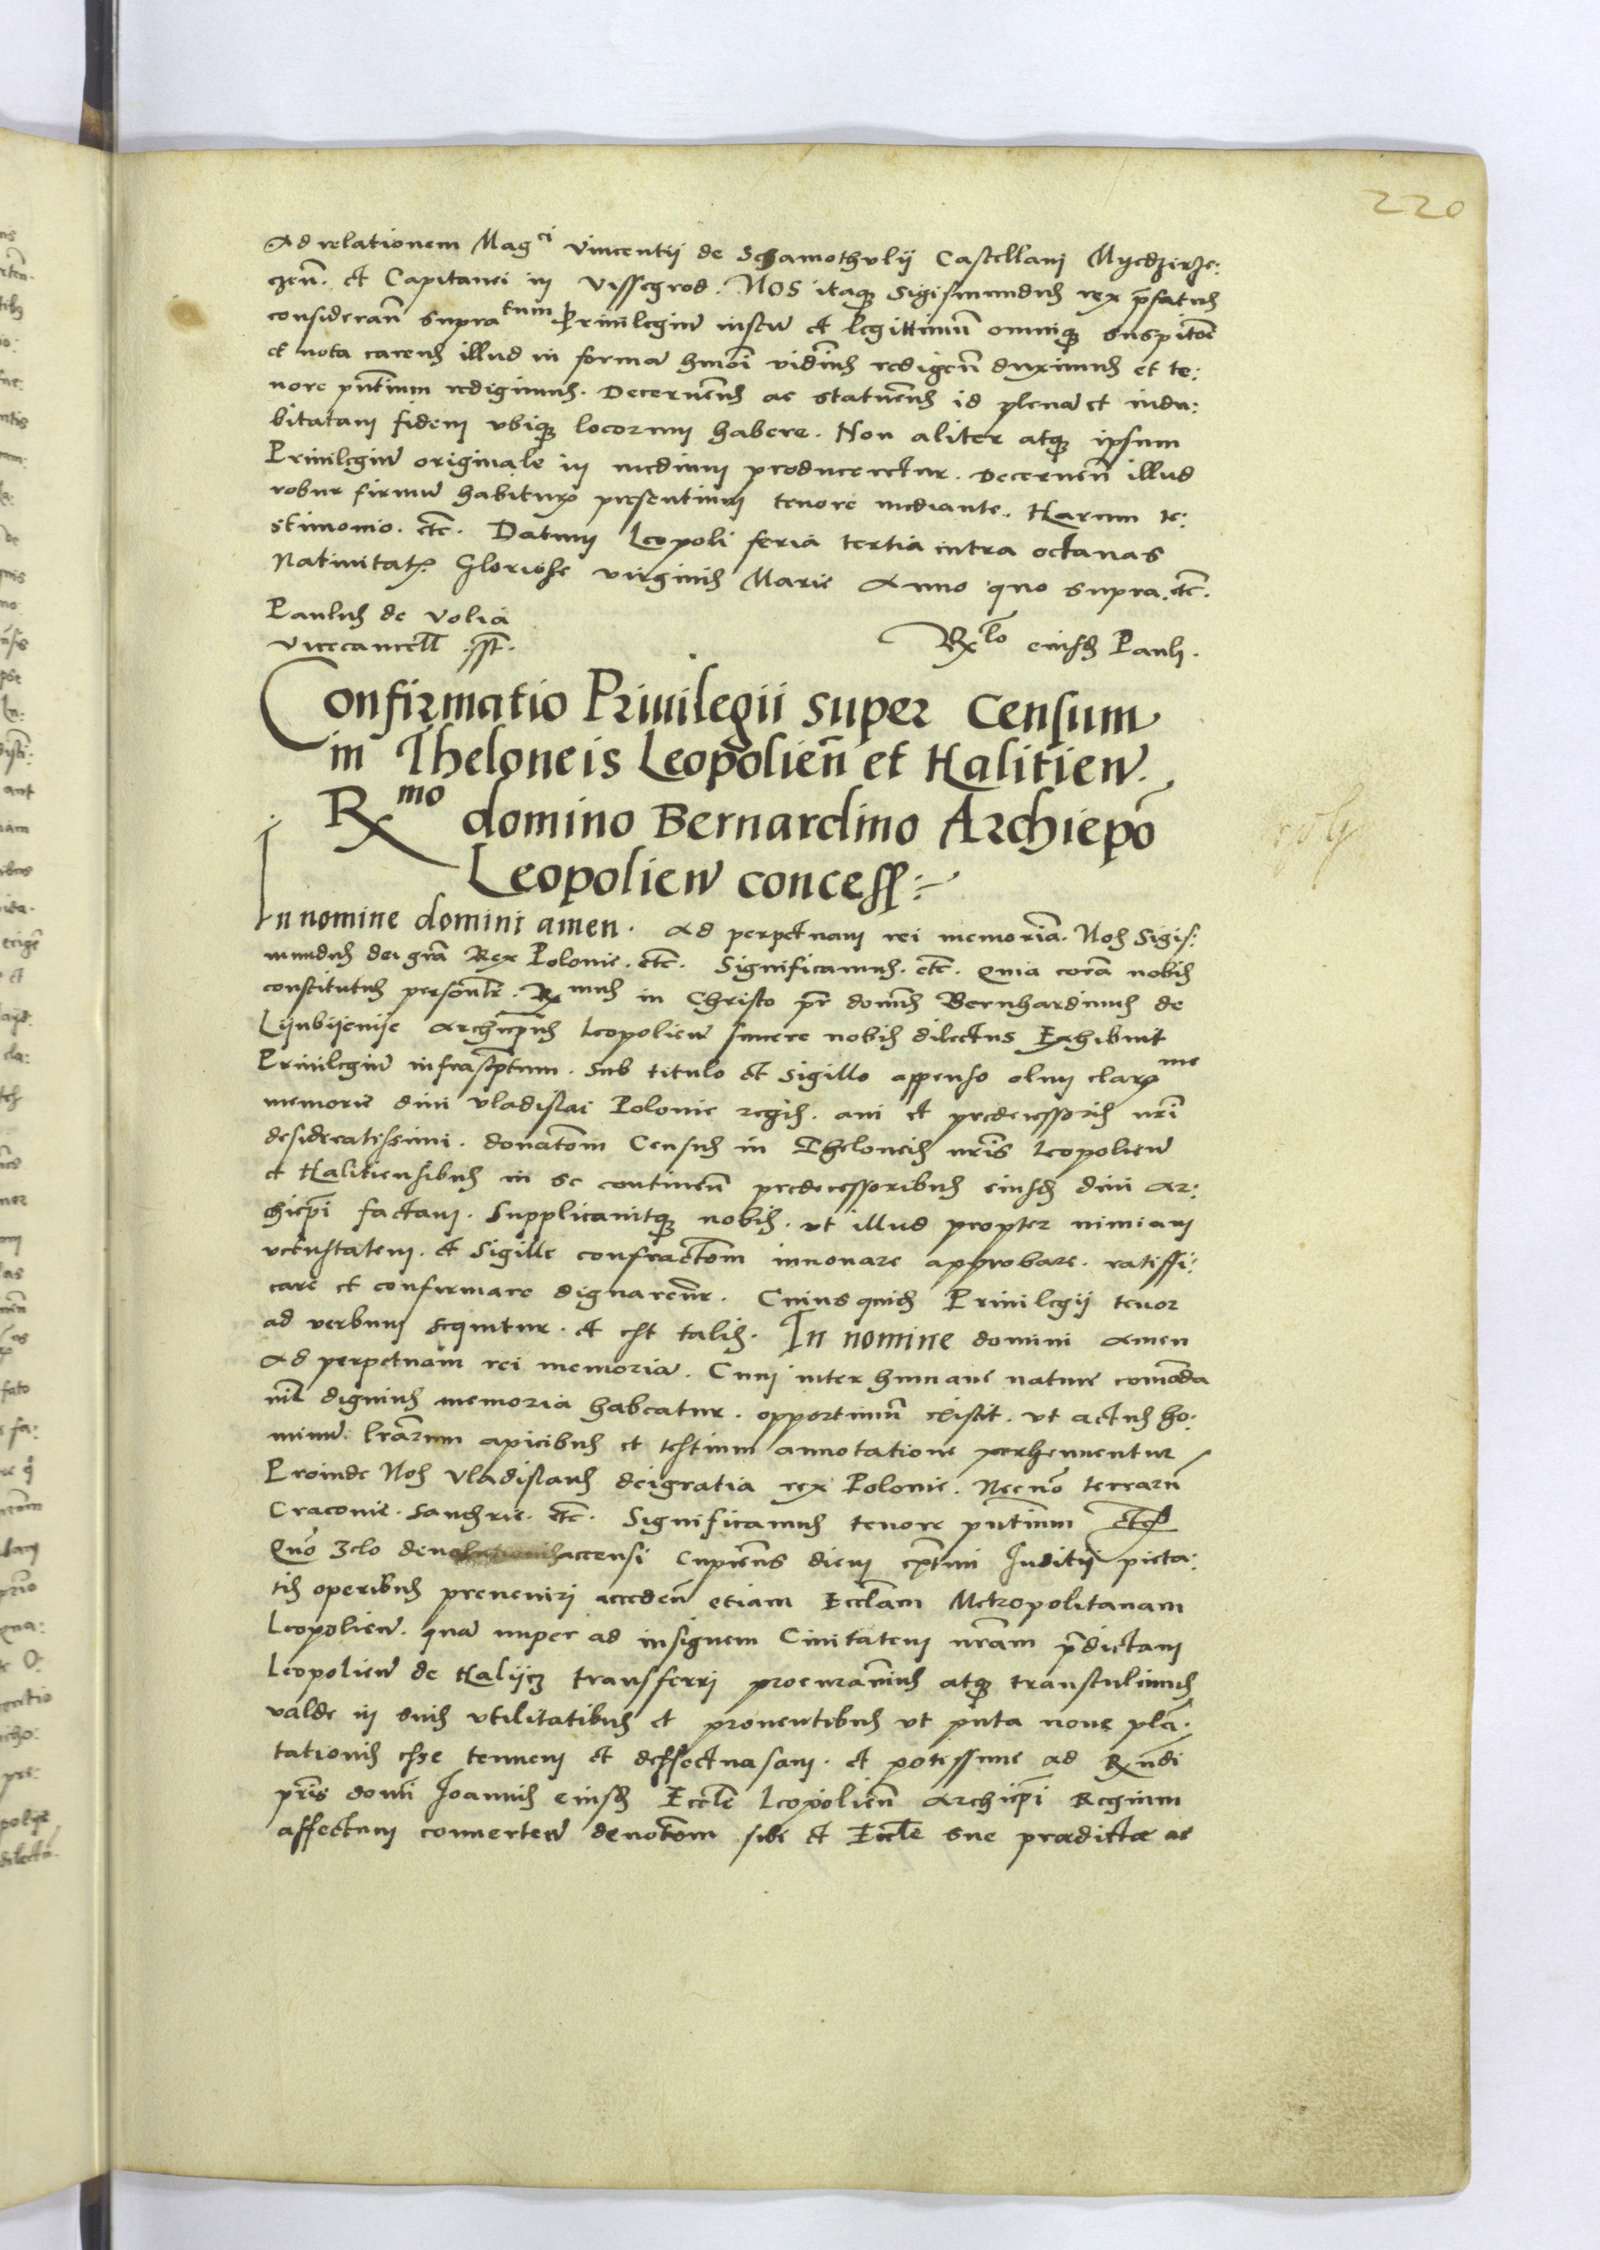 220
Ad relationem Mag^ci Vincentij de Schamothvlij Castellani Myedzerze:
czen̄. et Capitanei in Vissegrod. Nos itaq₃ Sigismundus rex p̄fatus
consideran̄ supra^tum Priuilegiū iustū et legittimū omniq₃ suspitōe
et nota carens illud in forma hmōi vidim̄s redigen̄ duximus et te:
nore pn̄tium redigimus. Decernen̄s ac statuen̄s id plenā et indu:
bitatam fidem vbiq₃ locorum habere. Non aliter atq₃ ipsum
Priuilegiū originale in medium produceretur. Decernen̄ illud
robur firmū habiturū presentium tenore mediante. Harum te:
stimonio. etc̄. Datum Leopoli feria tertia intra octauas
Natiuitatꝭ Gloriose virginis Marie Anno quo supra. etc̄.
Paulus de Volia
Vicecancell̄ . sst̄.
Rx^lo eiusdꝫ Pauli.
Confirmatio Priuilegii super Censum
in Theloneis Leopolien̄ et Halicien.
R^mo domino Bernardino Archiepō
Leopolien concess:~
In nomine domini amen. Ad perpetuam rei memoriā. Nos Sigis:
mundus dei gr̄a Rex Polonie. etc̄. Significamus. etc̄. Quia corā nobis
constitutus personl̄r. R^mus in Christo pr̄ domn̄s Bernhardinus de
Lijubijenije Archiep̄us Leopolien sincere nobis dilectus Exhibuit
Priuilegiū infrasc̄ptum. sub titulo et sigillo appenso olim clarꝫ^me
memorie diui Vladislai Polonie regis. aui et predecessoris nr̄i
desideratissimi. donatōem Census in Theloneis nr̄is Leopolien
et Haliciensibus in se continen̄ predecessoribus eiusdꝫ dn̄i Ar:
chiep̄i factam. Supplicauitq₃ nobis. vt illud propter nimiam
vetustatem. et Sigille confractōem innouare approbare. ratiffi:
care et confirmare dignaremr̄. Cuius quidꝫ Priuilegij tenor
ad verbum sequitur. et est talis. In nomine domini Amen
Ad perpetuam rei memoriā. Cum inter humane nature com̄oda
nil̄ dignius memoria habeatur. opportunū existit. vt actus ho:
minū. lr̄arum apicibus et testium annotatione perhennentur
Proinde Nos Vladislaus deigratia rex Polonie. Necnō terrarū
Cracouie. Sandꝫrie. etc̄. Significamus tenore pn̄tium etc̄
Quō Zelo deuotionis accensi Cupien̄s diem ext̄mi Iuditij pieta:
tis operibus preueniri acceden̄ etiam Eccl̄am Metropolitanam
Leopolien. quā nuper ad insignem Ciuitatem nr̄am p̄dictam
Leopolien de Halijcz transferri procurauim̄s atq₃ transtulimus
valde in suis vtilitatibus et prouentibus vt puta noue plā:
tationis esse tenuem et deffectuosam. et potissime ad Rn̄di
pr̄is domi̅ Joannis eiusdꝫ Eccl̄e Leopolien̄ Archiep̄i Regium
affectum conuerten deuotōem sibi et Eccl̄e sue prædictæ ac